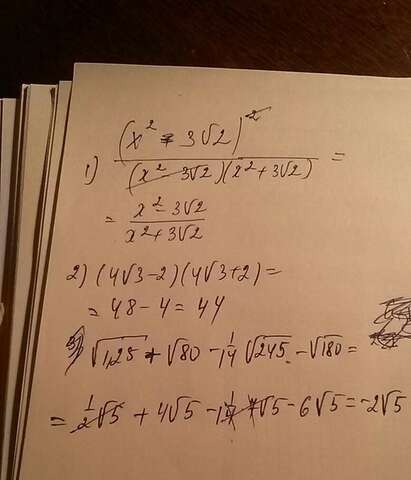 1) (x² - 3√2)² / (x² - 3√2)(x² + 3√2) =
= x² - 3√2 / x² + 3√2
2) (4√3 - 2)(4√3 + 2) =
= 48 - 4 = 44
3) √1,25 + √80 - 1/14 √245 - √180 =
= 1/2 √5 + 4√5 - 1/14 · 7√5 - 6√5 = -2√5